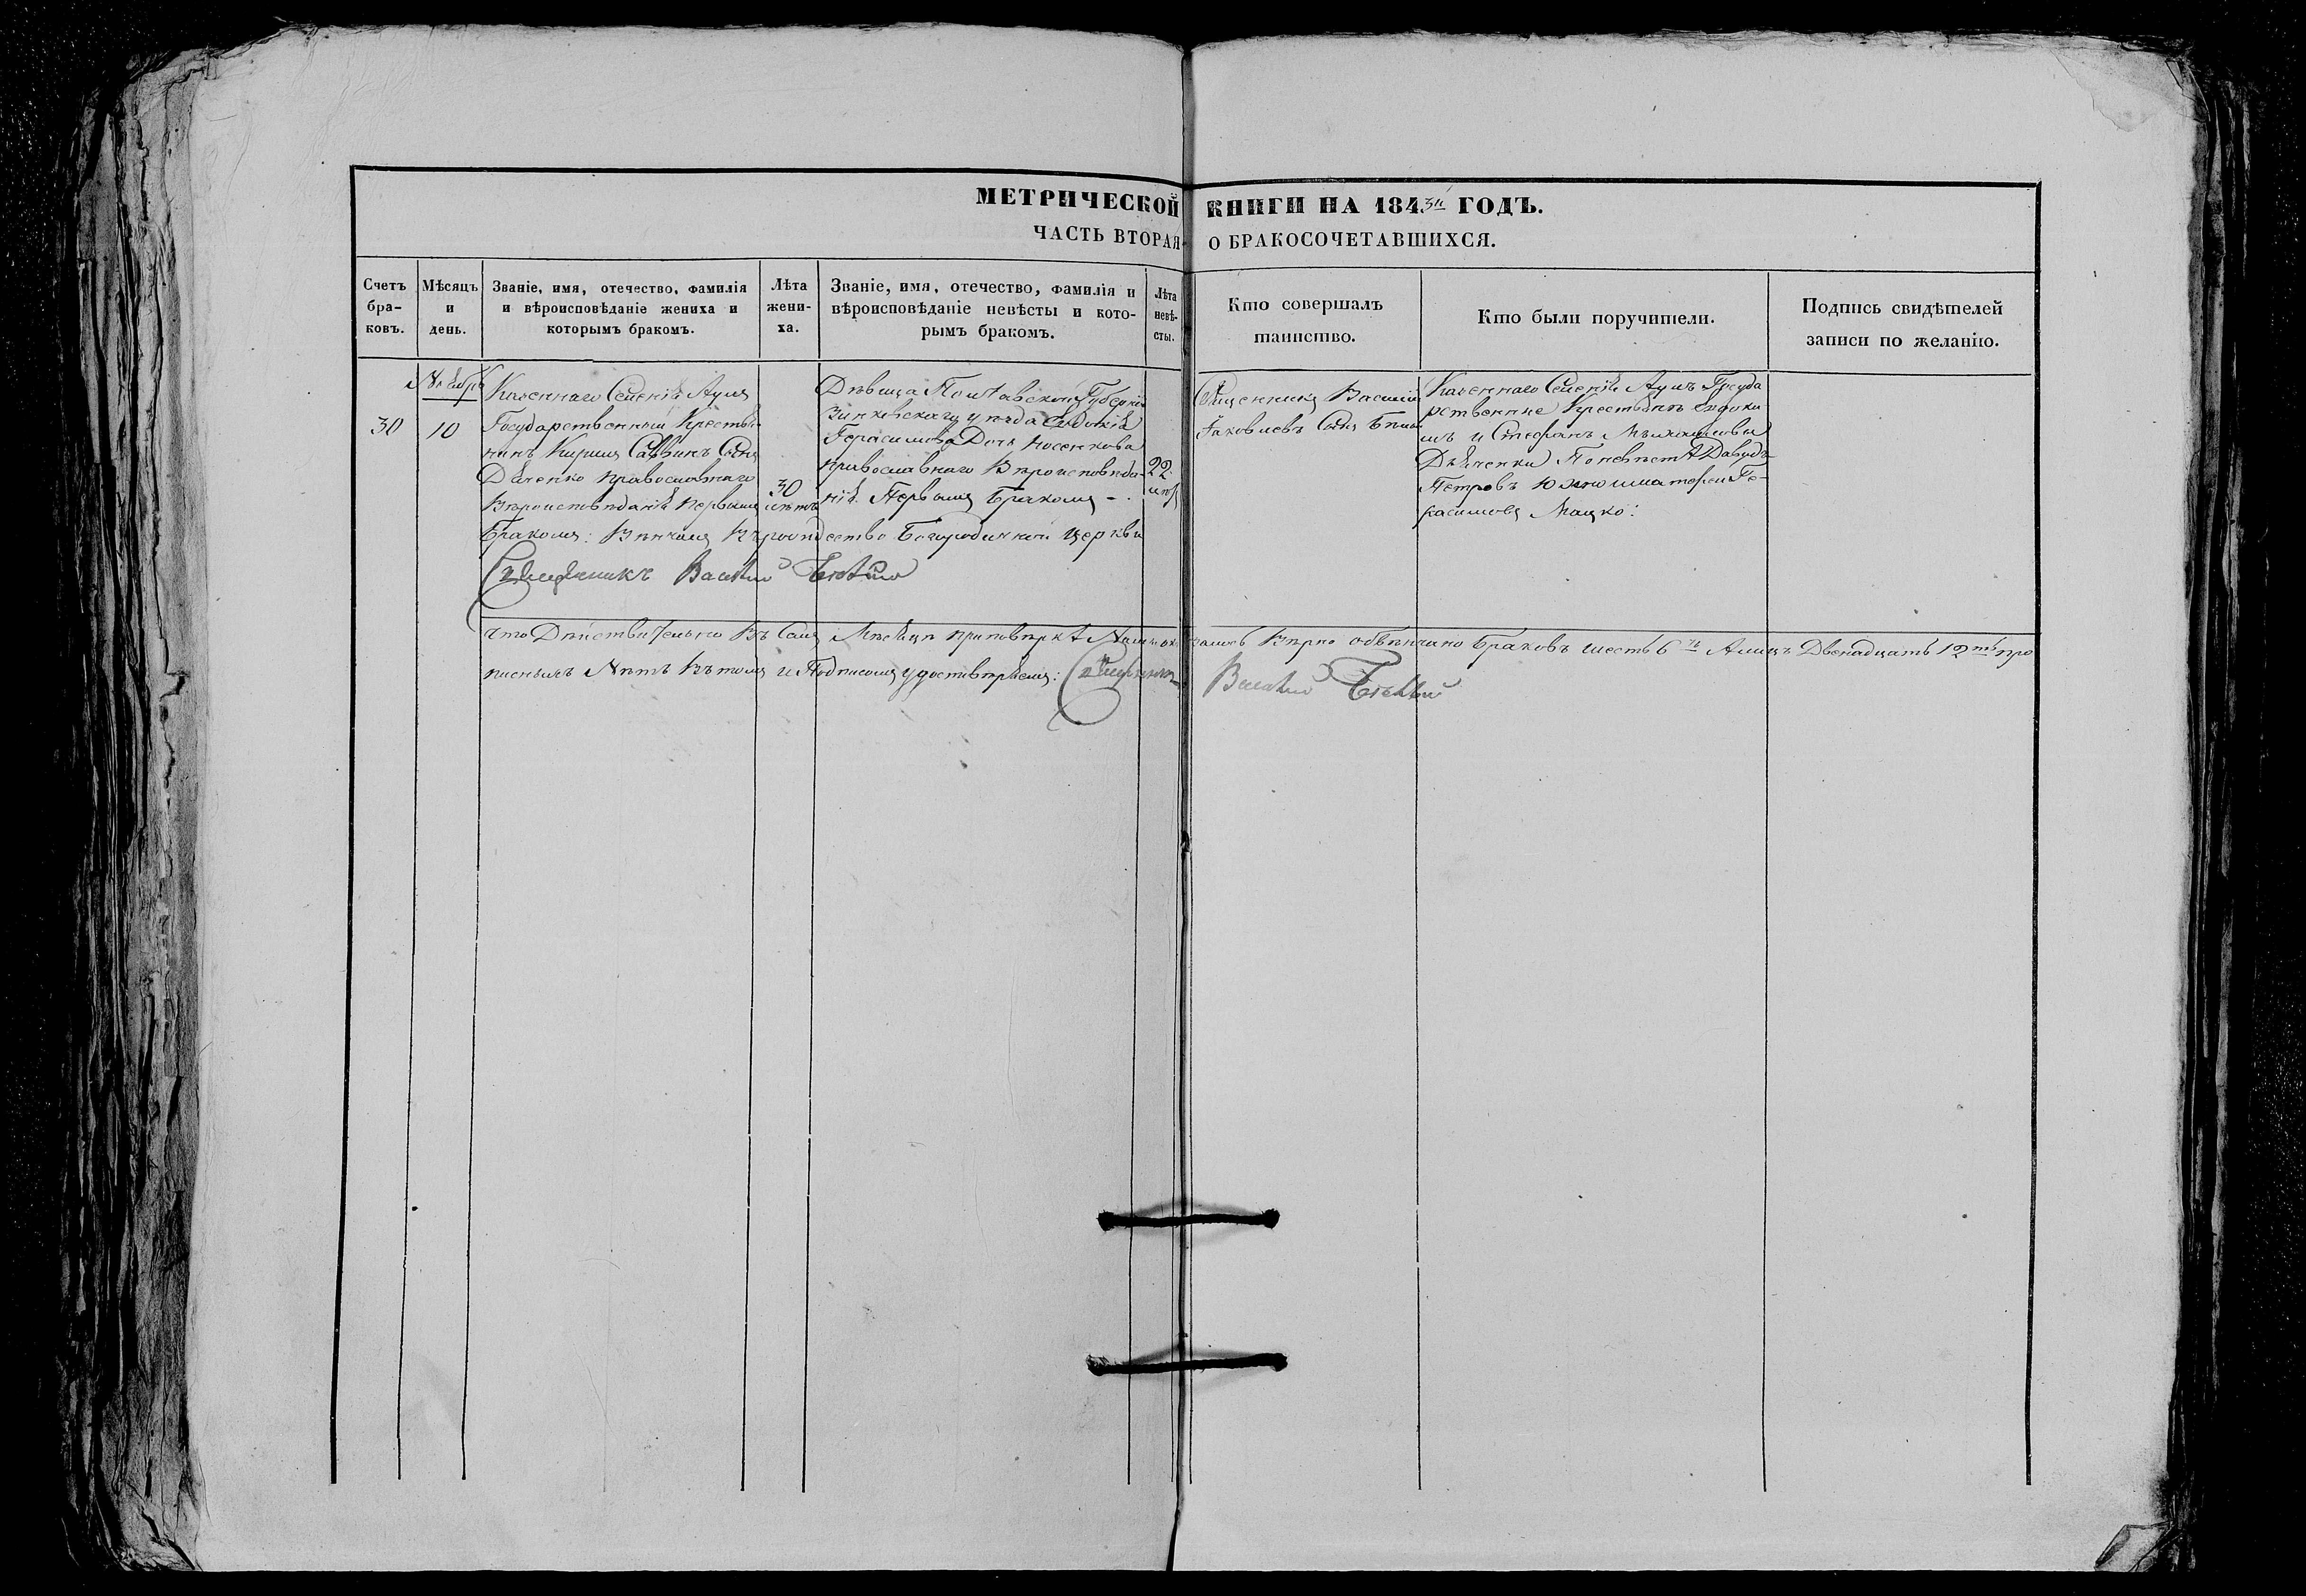 МЕТРИЧЕСКОЙ КНИГИ НА 1843й ГОДЪ.
ЧАСТЬ ВТОРАЯ О БРАКОСОЧЕТАВШИХСЯ.
Счетъ
бра-
ковъ.
Мѣсяцъ
и
день.
Званіе, имя, отечество, фамилія
и вѣроисповѣданіе жениха и
которымъ бракомъ.
Лѣта
жени-
ха.
Званіе, имя, отечество, фамилія и
вѣроисповѣданіе невѣсты и кото-
рымъ бракомъ.
Лѣта
невѣ-
сты.
Кто совершалъ
таинство.
Кто были поручители.
Подпись свидѣтелей
записи по желанію.
30
Ноября
10
Казеннаго Селенія
Государственный Крестья
нинъ Кирилъ Саввинъ Сынъ
Дяченко православнаго
Вѣроисповѣданія первымъ
бракомъ: Вѣнчаны Въ рождество Богородичной Церкви
30
лѣтъ
Дѣвица Полтавской Губерніи
Зинковскаго уѣзда Евдокія
Герасимова Дочь Носенкова
православнаго Вѣроисповѣда-
нія Первымъ бракомъ -
22
Священникъ Василій
Іаковлевъ Сынъ
Казеннаго Селенія Госуда
рственные Крестьяне Евдоки
мъ и Стефанъ
Дяченки По невѣстѣ Давудъ
Петровъ и Ге-
расимовъ Мацко:
Священникъ Василій
что Дѣйствительно Въ Семъ Мѣсяцѣ при повѣркѣ Вѣрно обвѣнчано браковъ шесть 6ть А лицъ Двенадцать 12ть про
писныхъ Нѣтъ Вътомъ и Подписомъ удостовѣряемъ: Священникъ Василій